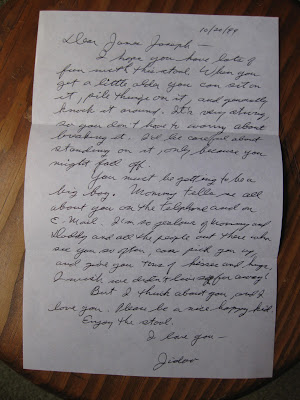 10/20/94
Dear James Joseph —
I hope you have lots of
fun with this stool. When you
get a little older you can sit on
it, pile things on it, and generally
knock it around. It's very strong,
so you don't have to worry about
breaking it. I'd be careful about
standing on it, only because you
might fall off.
You must be getting to be a
big boy. Mommy tells me all
about you on the telephone and on
E-Mail. I'm so jealous of Mommy and
Daddy and all the people out there who
see you so often, can pick you up,
and give you tons of kisses and hugs.
I wish we didn't live so far away!
But I think about you and I
love you. Please be a nice happy kid.
Enjoy the stool.
I love you —